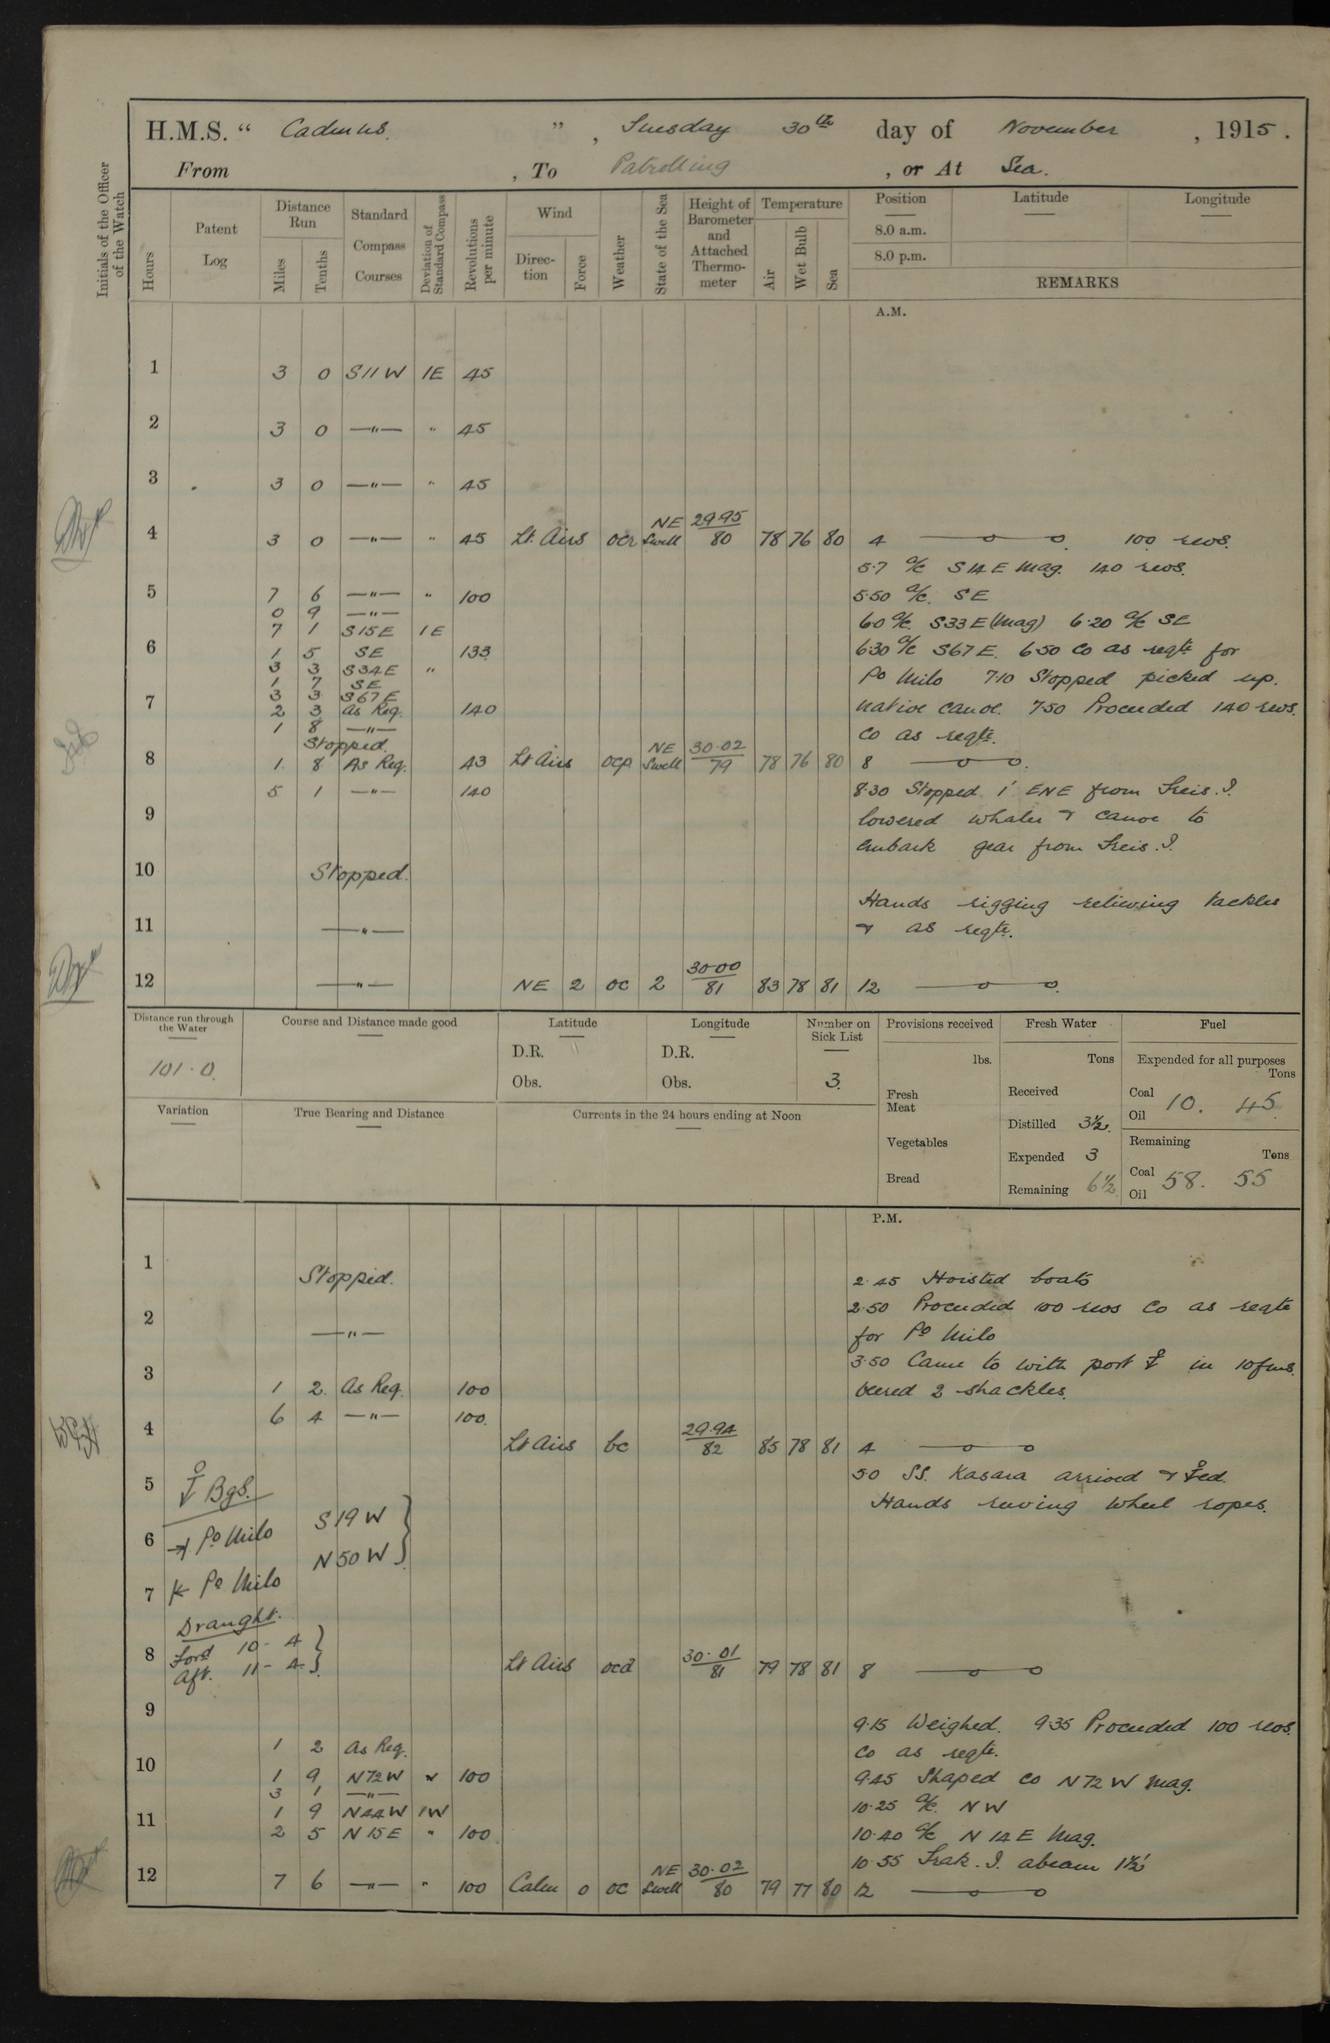 H.M.S. " Cadmus. " , Tuesday 30th day of November , 1915 .
From , To Patrolling , or At Sea.
Initials of the Officer of the Watch
Hours
Patent Log
Distance Run
Miles
Tenths
Standard Compass Courses
Deviation of Standard Compass
Revolutions per minute
Wind
Direction
Force
Weather
State of the Sea
Height of Barometer and Attached Thermometer
Temperature
Air
Wet Bulb
Sea
Position
Latitude
Longitude
8.0 a.m.
8.0 p.m.
REMARKS
A.M.
1 3 0 S11W 1E 45
2 3 0 —"— " 45
3 3 0 —"— " 45
4 3 0 —"— " 45 Lt. Airs ocr NE Swell 29.95 80 78 76 80 4 —o—o 100 revs.
5.7 a/c S14E Mag. 140 revs.
5 7 6 —"— " 100 5.50 a/c. SE
0 9 —"— 6.0 a/c S33E (Mag) 6.20 a/c SE
7 1 S15E 1E
6 1 5 SE 133 6.30 a/c S67E. 6.50 Co as reqte for
3 3 S34E "
1 7 SE Po Milo 7.10 Stopped picked up.
3 3 S67E
7 2 3 As Req. 140 native canoe. 7.50 Proceeded 140 revs.
1 8 —"— Co as reqte.
Stopped.
8 1 8 As Req. 43 Lt Airs ocp NE Swell 30.02 79 78 76 80 8 —o—o.
5 1 —"— 140 8.30 Stopped 1' ENE from Treis. I.
9 lowered whaler & canoe to
embark gear from Treis. I.
10 Stopped.
Hands rigging relieving tackles
11 —"— & as reqte.
12 —"— NE 2 oc 2 30.00 81 83 78 81 12 —o—o.
Distance run through the Water
101.0
Course and Distance made good
Latitude
D.R.
Obs.
Longitude
D.R.
Obs.
Number on Sick List
3.
Provisions received
lbs.
Fresh Meat
Vegetables
Bread
Fresh Water
Tons
Received
Distilled 3½.
Expended 3
Remaining 6½
Fuel
Expended for all purposes
Tons
Coal Oil 10. 45
Remaining
Tons
Coal Oil 58. 55
Variation
True Bearing and Distance
Currents in the 24 hours ending at Noon
P.M.
1 Stopped. 2.45 Hoisted boats
2.50 Proceeded 100 revs Co as reqte
2 —"— for Po Milo
3.50 Came to with port ⚓ in 10 fms.
3 1 2 As Req. 100 veered 2 shackles.
6 4 —"— 100.
4 Lt Airs bc 29.94 82 85 78 81 4 —o—o
5.0 SS. Kasara arrived & ⚓ed.
5 ⚓ Bgs. Hands reeving wheel ropes.
6 →| Po Milo S19W }
N50W }
7 |← Po Milo
Draught.
8 Ford 10 - 4 } Lt Airs ocd 30.01 81 79 78 81 8 —o—o
Aft. 11 - 4 }
9 9.15 Weighed. 9.35 Proceeded 100 revs.
1 2 As Req. Co as reqte.
10 1 9 N72W " 100 9.45 Shaped Co N72W Mag.
3 1 —"—
1 9 N44W 1W 10.25 a/c. NW
11 2 5 N15E " 100 10.40 a/c N14E Mag.
10.55 Trak. I. abeam 1½'
12 7 6 —"— " 100 Calm 0 oc NE Swell 30.02 80 79 77 80 12 —o—o